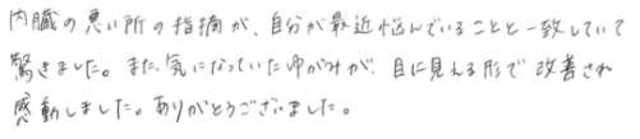 内臓の悪い所の指摘が、自分が最近悩んでいることと一致していて
驚きました。また、気になっていたゆがみが、目に見える形で改善され
感動しました。ありがとうございました。